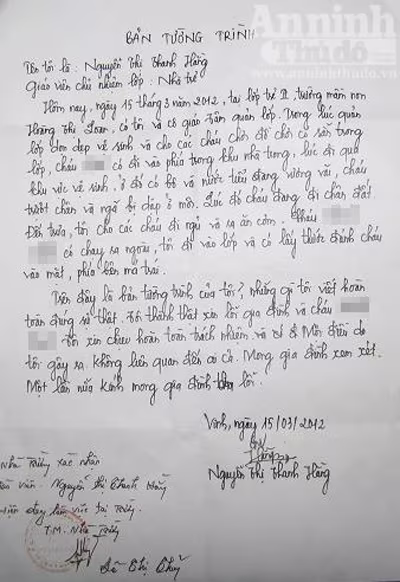 An ninh
Thủ đô
www.anninhthudo.vn
BẢN TƯỜNG TRÌNH
Tên tôi là: Nguyễn Thị Thanh Hằng
Giáo viên chủ nhiệm lớp: Nhà trẻ
Hôm nay, ngày 15 tháng 3 năm 2012, tại lớp trẻ II, trường mầm non
Hoàng Thị Loan, có tôi và cô giáo Trâm quản lớp. Trong lúc quản
lớp dọn dẹp vệ sinh và cho các cháu chơi đồ chơi có sẵn trong
lớp, cháu có đi vào phía trong khu nhà trong, lúc đi qua
khu vực vệ sinh, ở đó có bô và nước tiểu đang vương vãi, cháu
trượt chân và ngã bị dập ở mồm. Lúc đó cháu đang đi chân đất
Đến trưa, tôi cho các cháu đi ngủ và ra ăn cơm. Cháu
có chạy ra ngoài, tôi đi vào lớp và có lấy thước đánh cháu
vào mặt, phía bên má trái.
Trên đây là bản tường trình của tôi, những gì tôi viết hoàn
toàn đúng sự thật. Tôi thành thật xin lỗi gia đình và cháu
Tôi xin chịu hoàn toàn trách nhiệm và mọi điều do
tôi gây ra. Không liên quan đến ai cả. Mong gia đình xem xét.
Một lần nữa kính mong gia đình tha lỗi.
Vinh, ngày 15/03/2012
Hằng
Nguyễn Thị Thanh Hằng
Nhà Trường xác nhận
Giáo viên: Nguyễn Thị Thanh Hằng
Hiện đang làm việc tại Trường
T.M. Nhà Trường